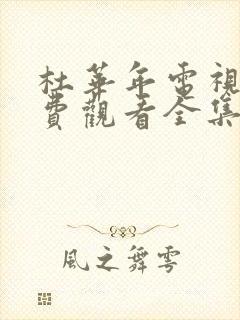 杜華年電視
費觀看全集
風之舞雩